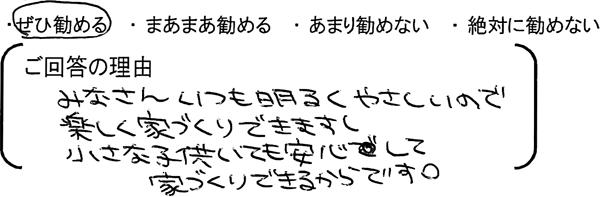 ・ぜひ勧める ・まあまあ勧める ・あまり勧めない ・絶対に勧めない
ご回答の理由
みなさんいつも明るくやさしいので
楽しく家づくりできますし
小さな子供いても安心して
家づくりできるからです。